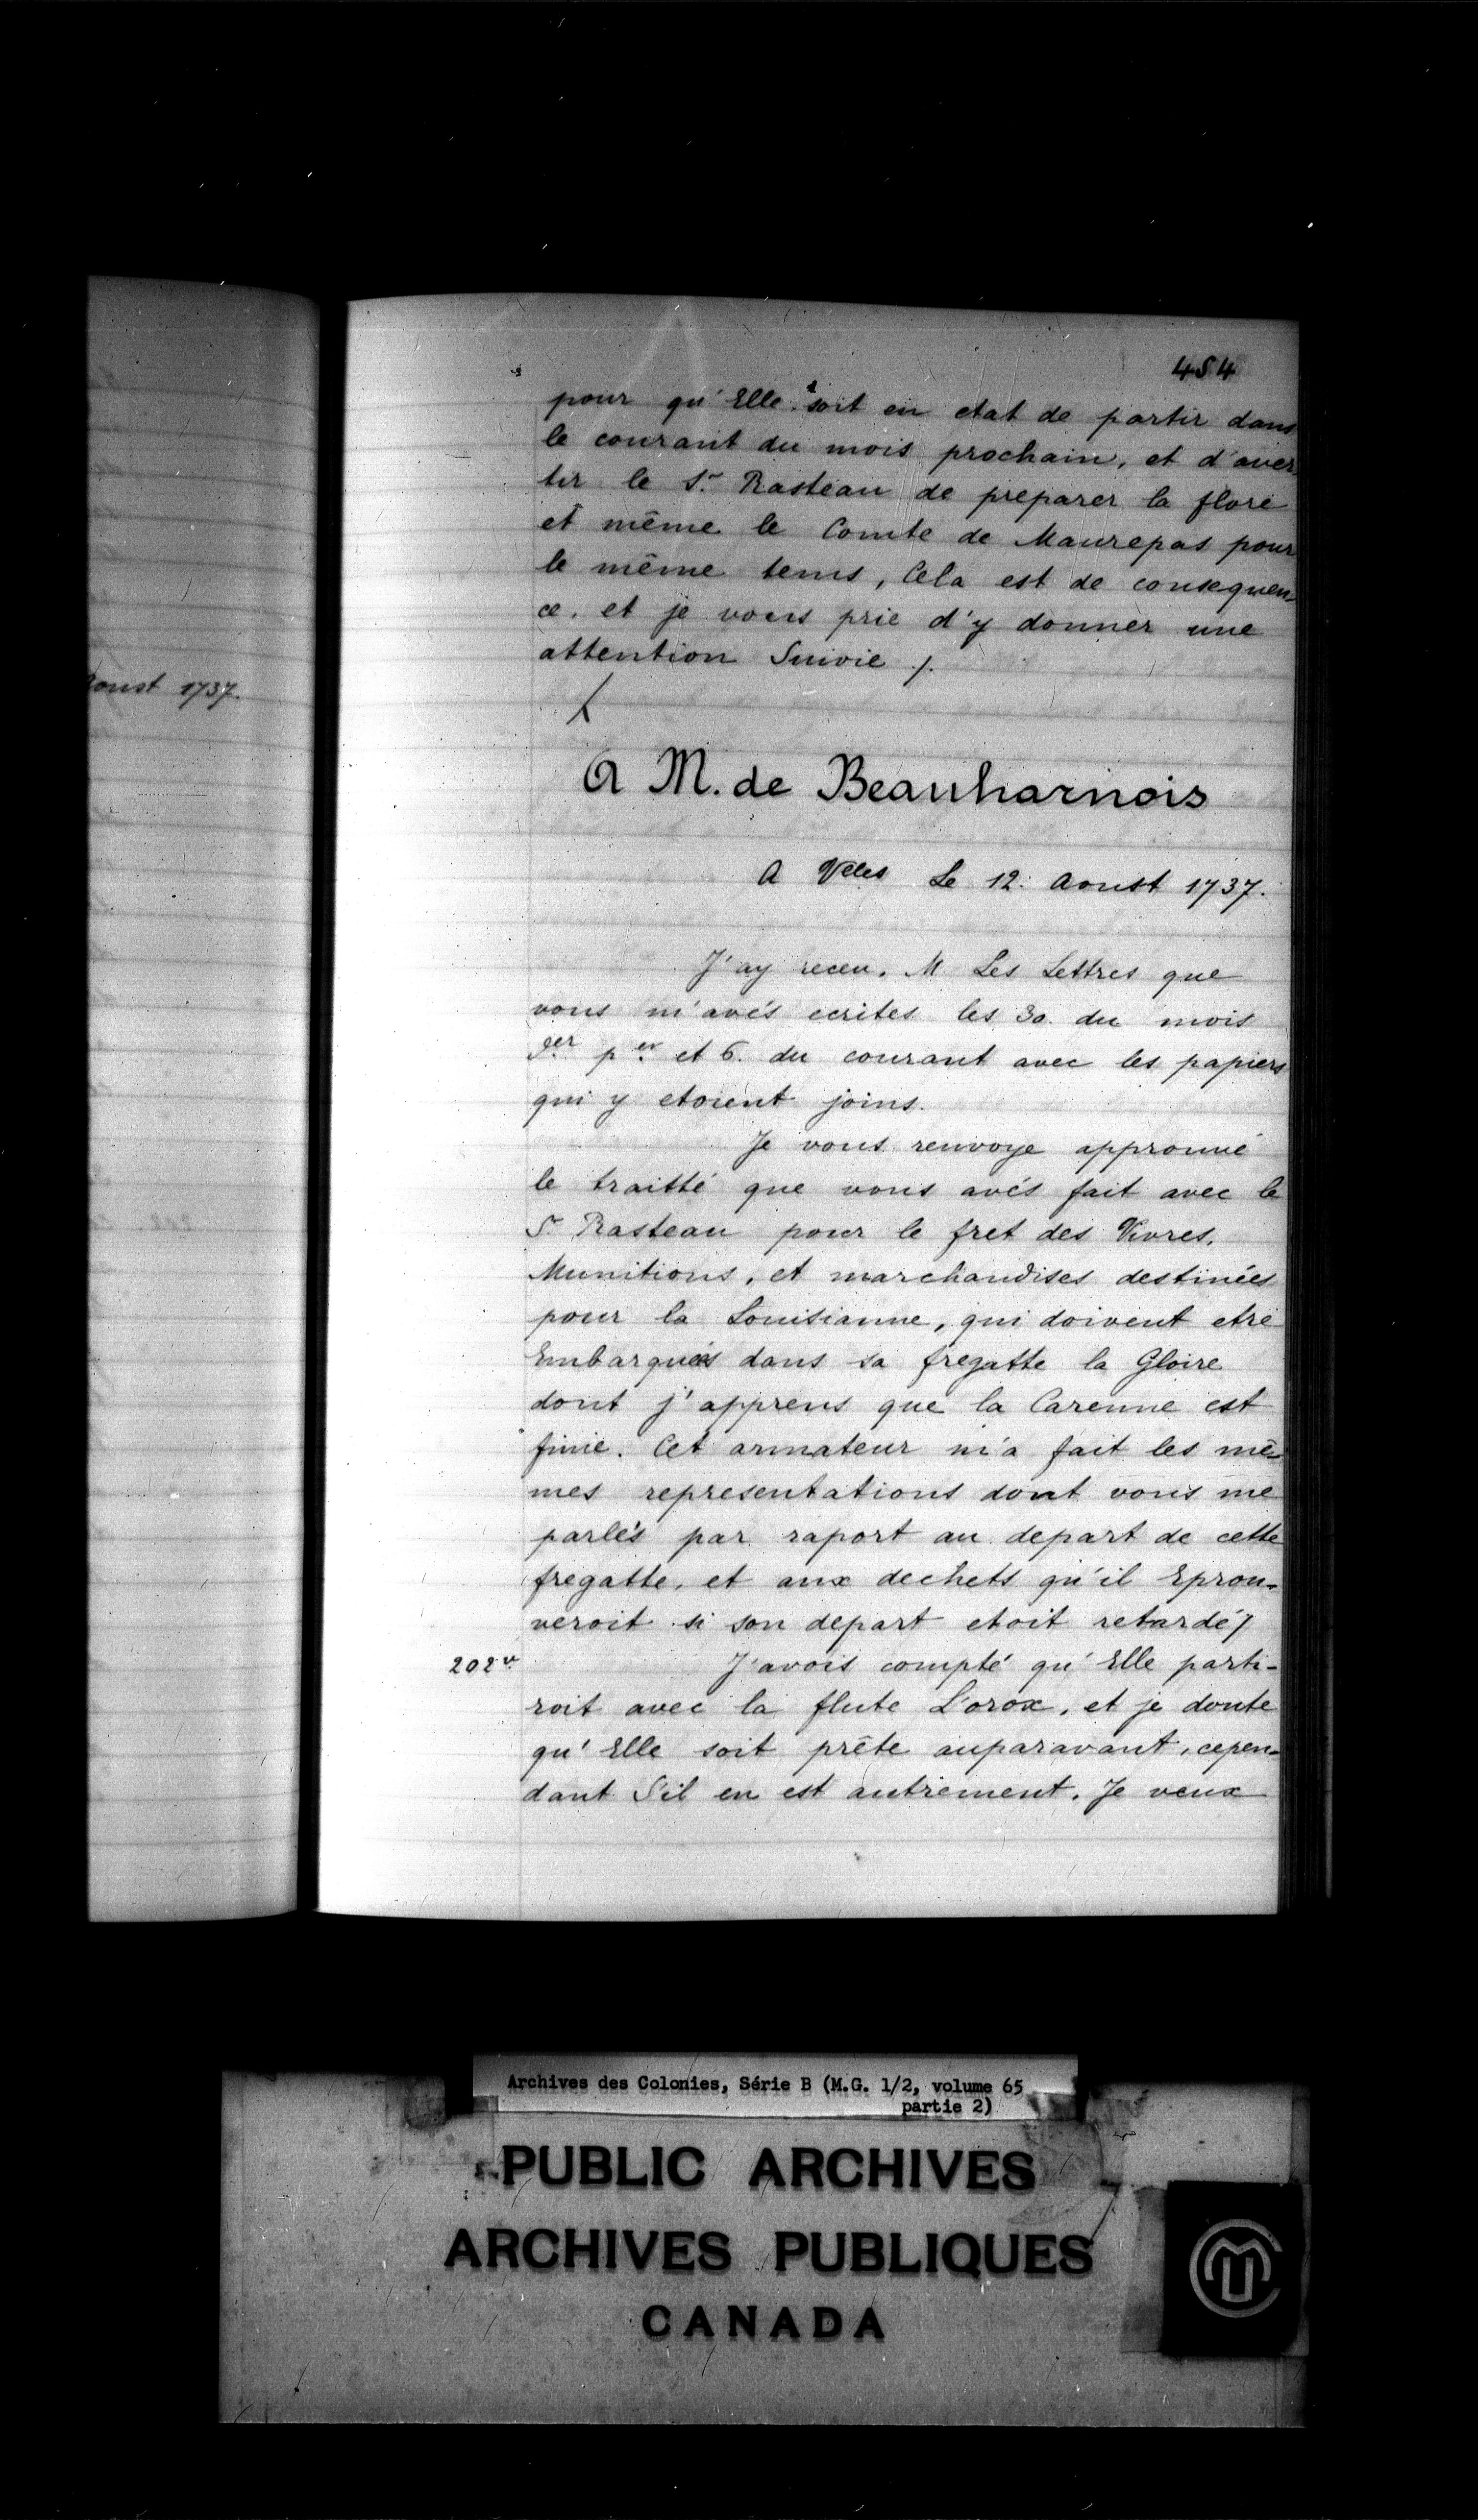 oust 1737.
454
pour qu'Elle soit en etat de partir dans
le courant du mois prochain, et d'aver
tir le Sr. Rasteau de preparer la flore
et même le Comte de Maurepas pour
le même tems, Cela est de consequen-
ce. et je vous prie d'y donner une
attention Suivie ./.
A M. de Beauharnois
A Vlles Le 12. Aoust 1737.
J'ay receu. M Les Lettres que
vous m'avés ecrites les 30. du mois
der. per. et 6. du courant avec les papiers
qui y etoient joins.
Je vous renvoye approuvé
le traitté que vous avés fait avec le
Sr. Rasteau pour le fret des Vivres,
Munitions, et marchandises destinées
pour la Louisianne, qui doivent etre
Embarqués dans sa fregatte la Gloire
dont j'apprens que la Carenne est
finie. Cet armateur m'a fait les mê-
mes representations dont vous me
parlés par raport au depart de cette
fregatte, et aux dechets qu'il Eprou-
veroit si son depart etoit retardé/
202 v.
J'avois compté qu'Elle parti-
roit avec la flute L'orox, et je doute
qu'Elle soit prête auparavant, cepen-
dant S'il en est autrement. Je veux
Archives des Colonies, Série B (M.G. 1/2, volume 65
partie 2)
PUBLIC ARCHIVES
ARCHIVES PUBLIQUES
CANADA